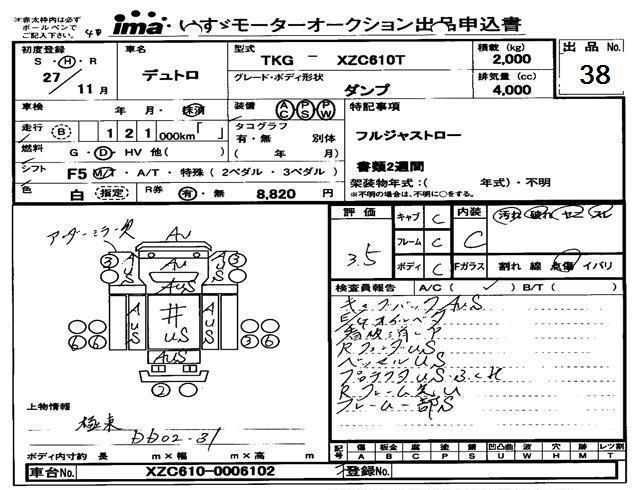 ※赤太枠内は必ず
ボールペンで
ご記入下さい。
ima いすゞモーターオークション出品申込書
初度登録
S・H・R
27/11月
車名
デュトロ
型式
TKG － XZC610T
グレード・ボディ形状
ダンプ
積載 (kg)
2,000
排気量 (cc)
4,000
出品 No.
38
車検 年・月・抹消
走行 B 1 2 1 000km「 」
燃料 G・D・HV 他( )
シフト F5 M/T・A/T・特殊 ( 2ペダル・3ペダル )
色 白 指定 R券 有・無 8,820 円
装備 AC PS PW
タコグラフ
有・無 別体
( 年 月)
特記事項
フルジャストロー
書類2週間
架装物年式：( 年式)・不明
※不明の場合は、不明に○をする。
アンダーミラー欠
AU
3 AUS AU AUS AUS 3
AUS 井 US AUS
6 6 AUS 3 6
2
上物情報
極東
DD02-31
ボディ内寸約 長 m×幅 m×高 m
評価
3.5
キャブ C
フレーム C
ボディ C
内装
C
汚れ 破れ コゲ スレ
Fガラス 割れ 線 点傷 イバリ
検査員報告 A/C ( ✓ ) B/T ( )
キャブバック AUS
Rフェンダ US
ベッセル US
フレーム一部S
記号 傷 板金 腐 塗 錆 凹凸曲 波 穴 跡 レツ割
A B C P S U W H M T
車台No. XZC610-0006102
登録No.